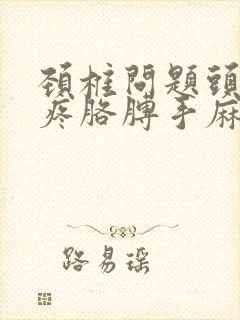 頚椎問題頭
疼胳膊手麻
路易瑶